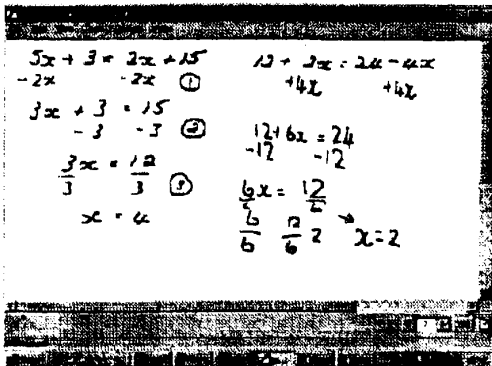 5x + 3 = 2x + 15
-2x -2x ①
3x + 3 = 15
- 3 - 3 ②
3x = 12
3 3 ③
x = 4
12 + 2x = 24 - 4x
+4x +4x
12 + 6x = 24
-12 -12
6x = 12
6 6
6 12 2 → x = 2
6 6